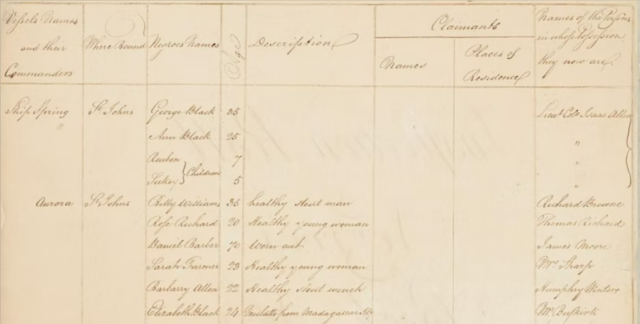 Vessels Names and their Commanders | Where Bound | Negroes Names | Age | Description | Claimants | Names of the Persons in whose Possession they now are
Names | Places of Residence
Ship Spring | St Johns | George Black | 35 | Lieut Colo Isaac Allen
" | Ann Black | 25 | "
Reuben | 7 | "
Sukey } Children | 5 | "
Aurora | St Johns | Billy Williams | 35 | healthy stout man | Richard Browne
Rose Richard | 20 | Healthy young woman | Thomas Richard
Daniel Barber | 70 | Worn out | James Moore
Sarah Farmer | 23 | Healthy young woman | Mrs Sharp
Barbarry Allen | 22 | Healthy stout wench | Humphry Winters
Elizabeth Black | 24 | Mulatto from Madagascar | Mr Buskirk